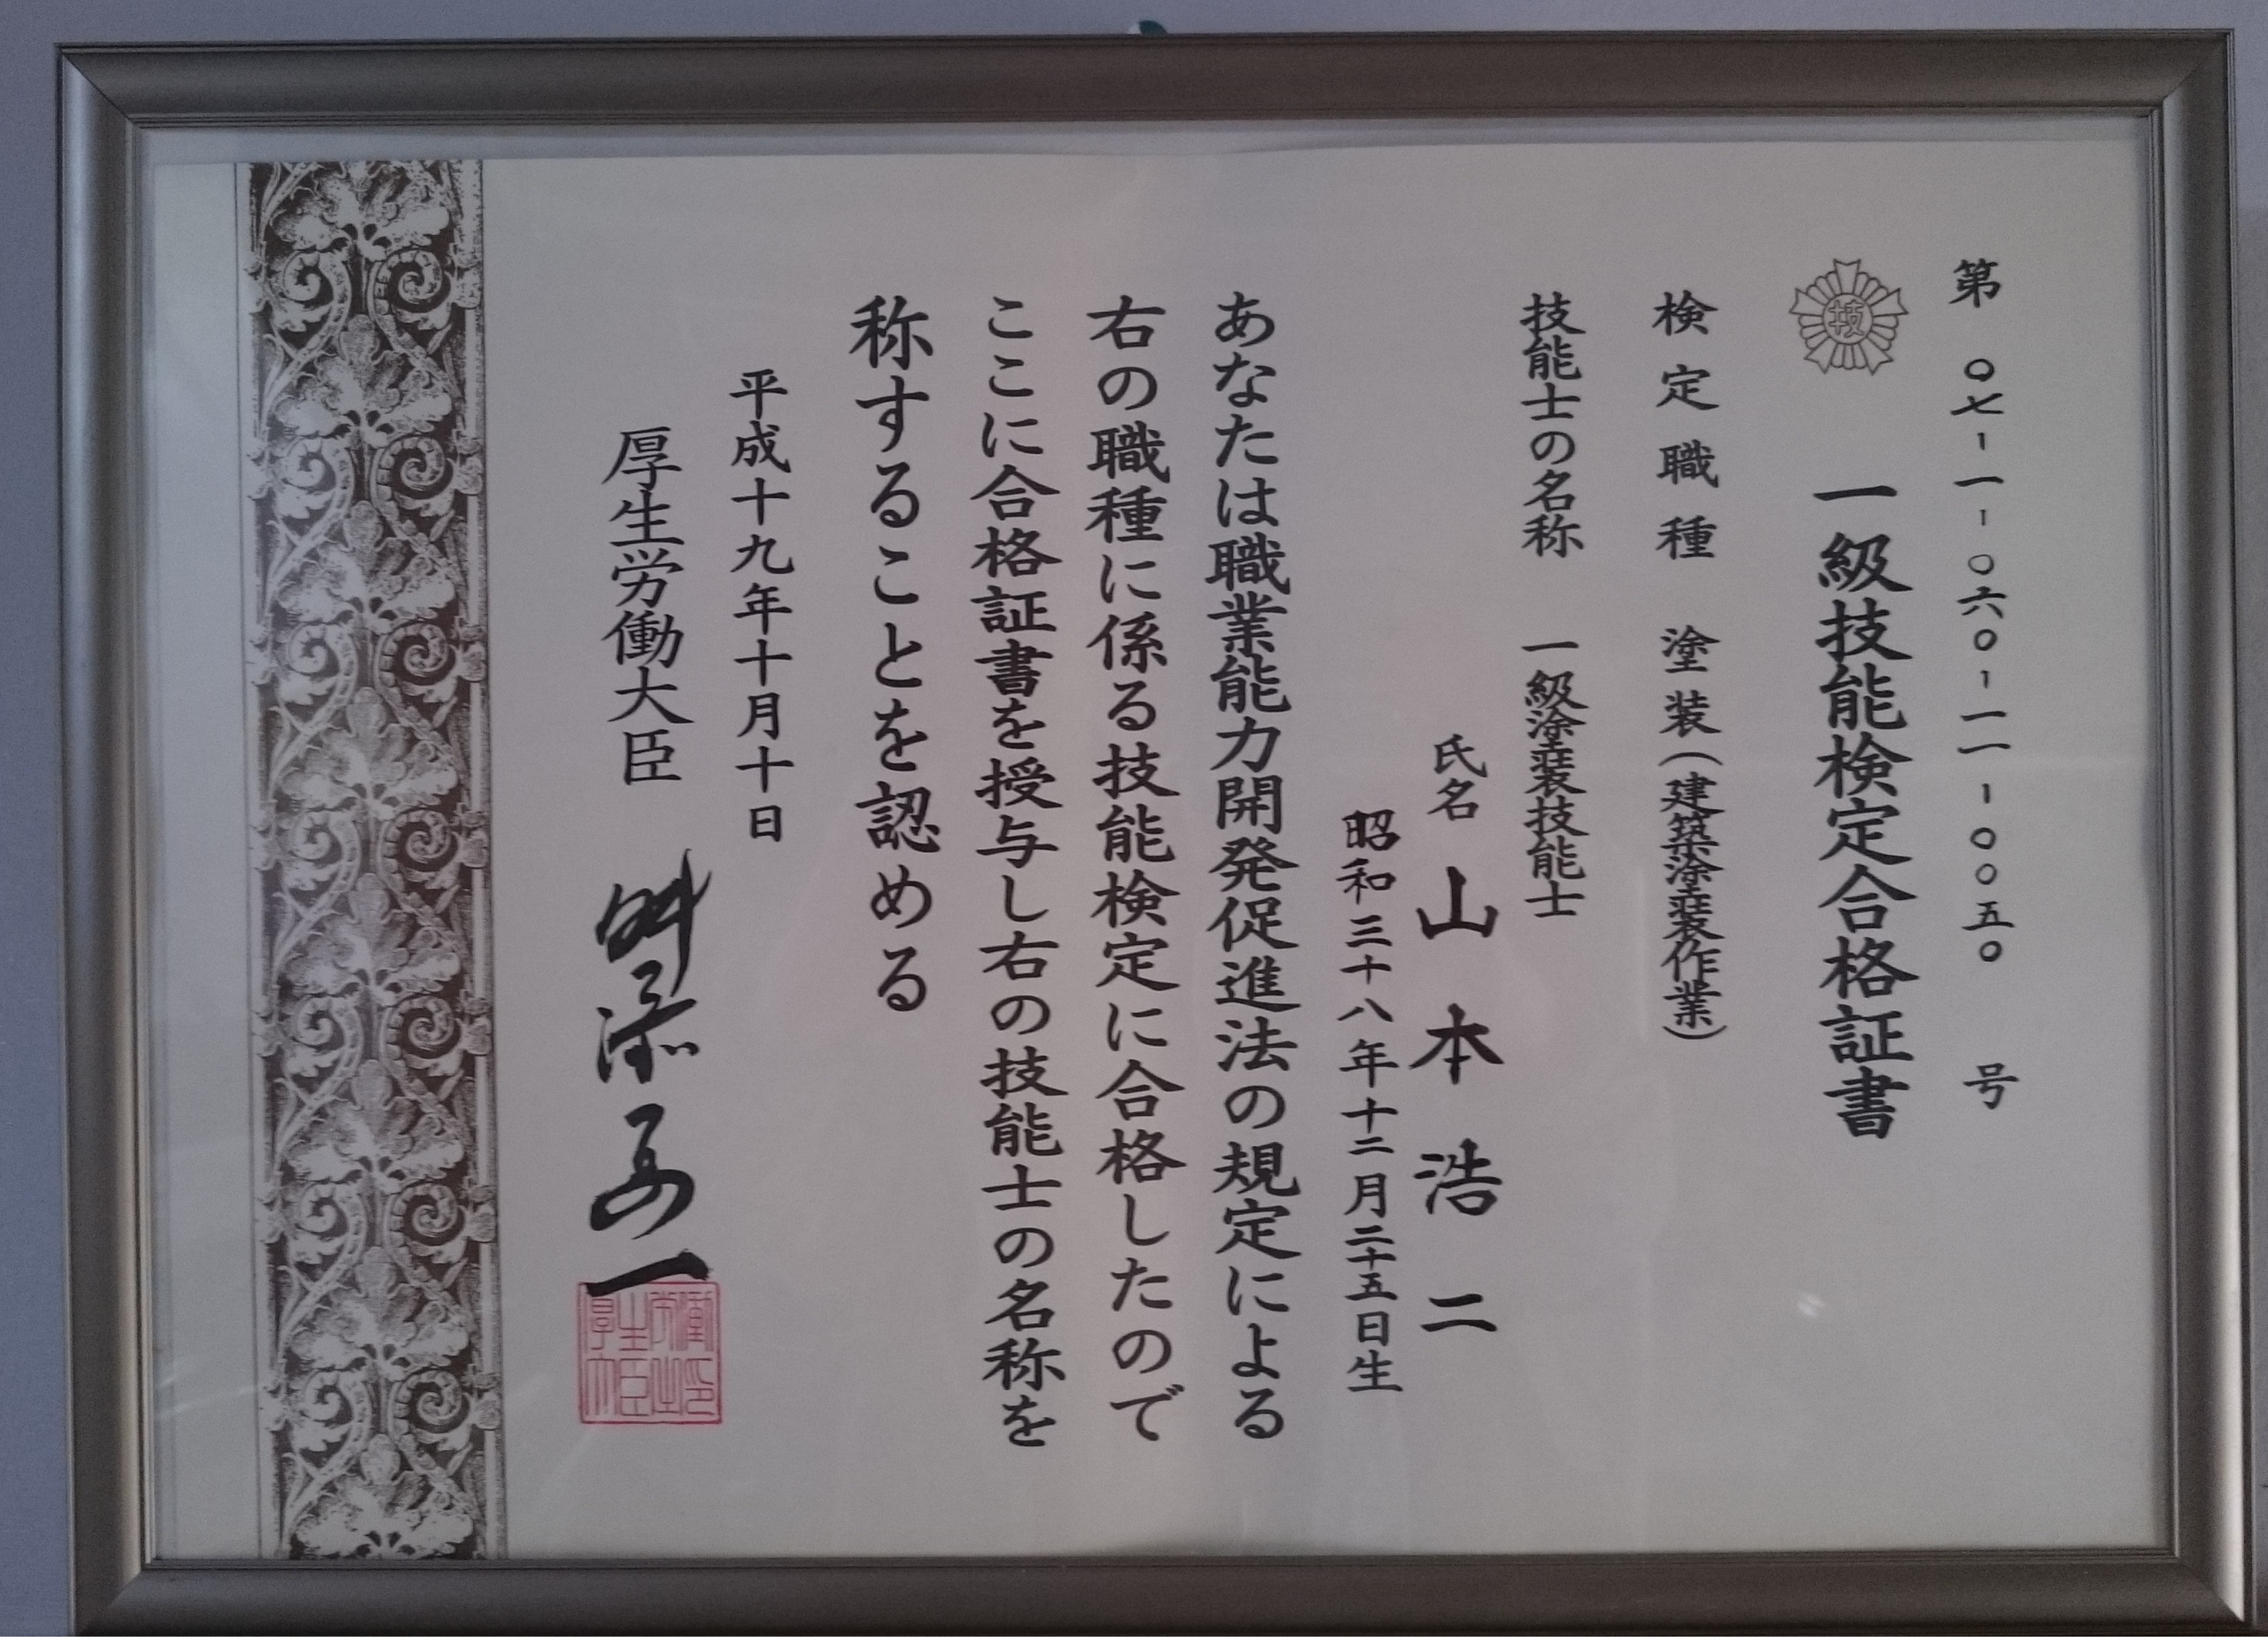 第 〇七-一-〇六〇-一一-〇〇五〇 号
技
一級技能検定合格証書
検定職種 塗装(建築塗装作業)
技能士の名称 一級塗装技能士
氏名 山本浩二
昭和三十八年十二月二十五日生
あなたは職業能力開発促進法の規定による
右の職種に係る技能検定に合格したので
ここに合格証書を授与し右の技能士の名称を
称することを認める
平成十九年十月十日
厚生労働大臣 舛添要一